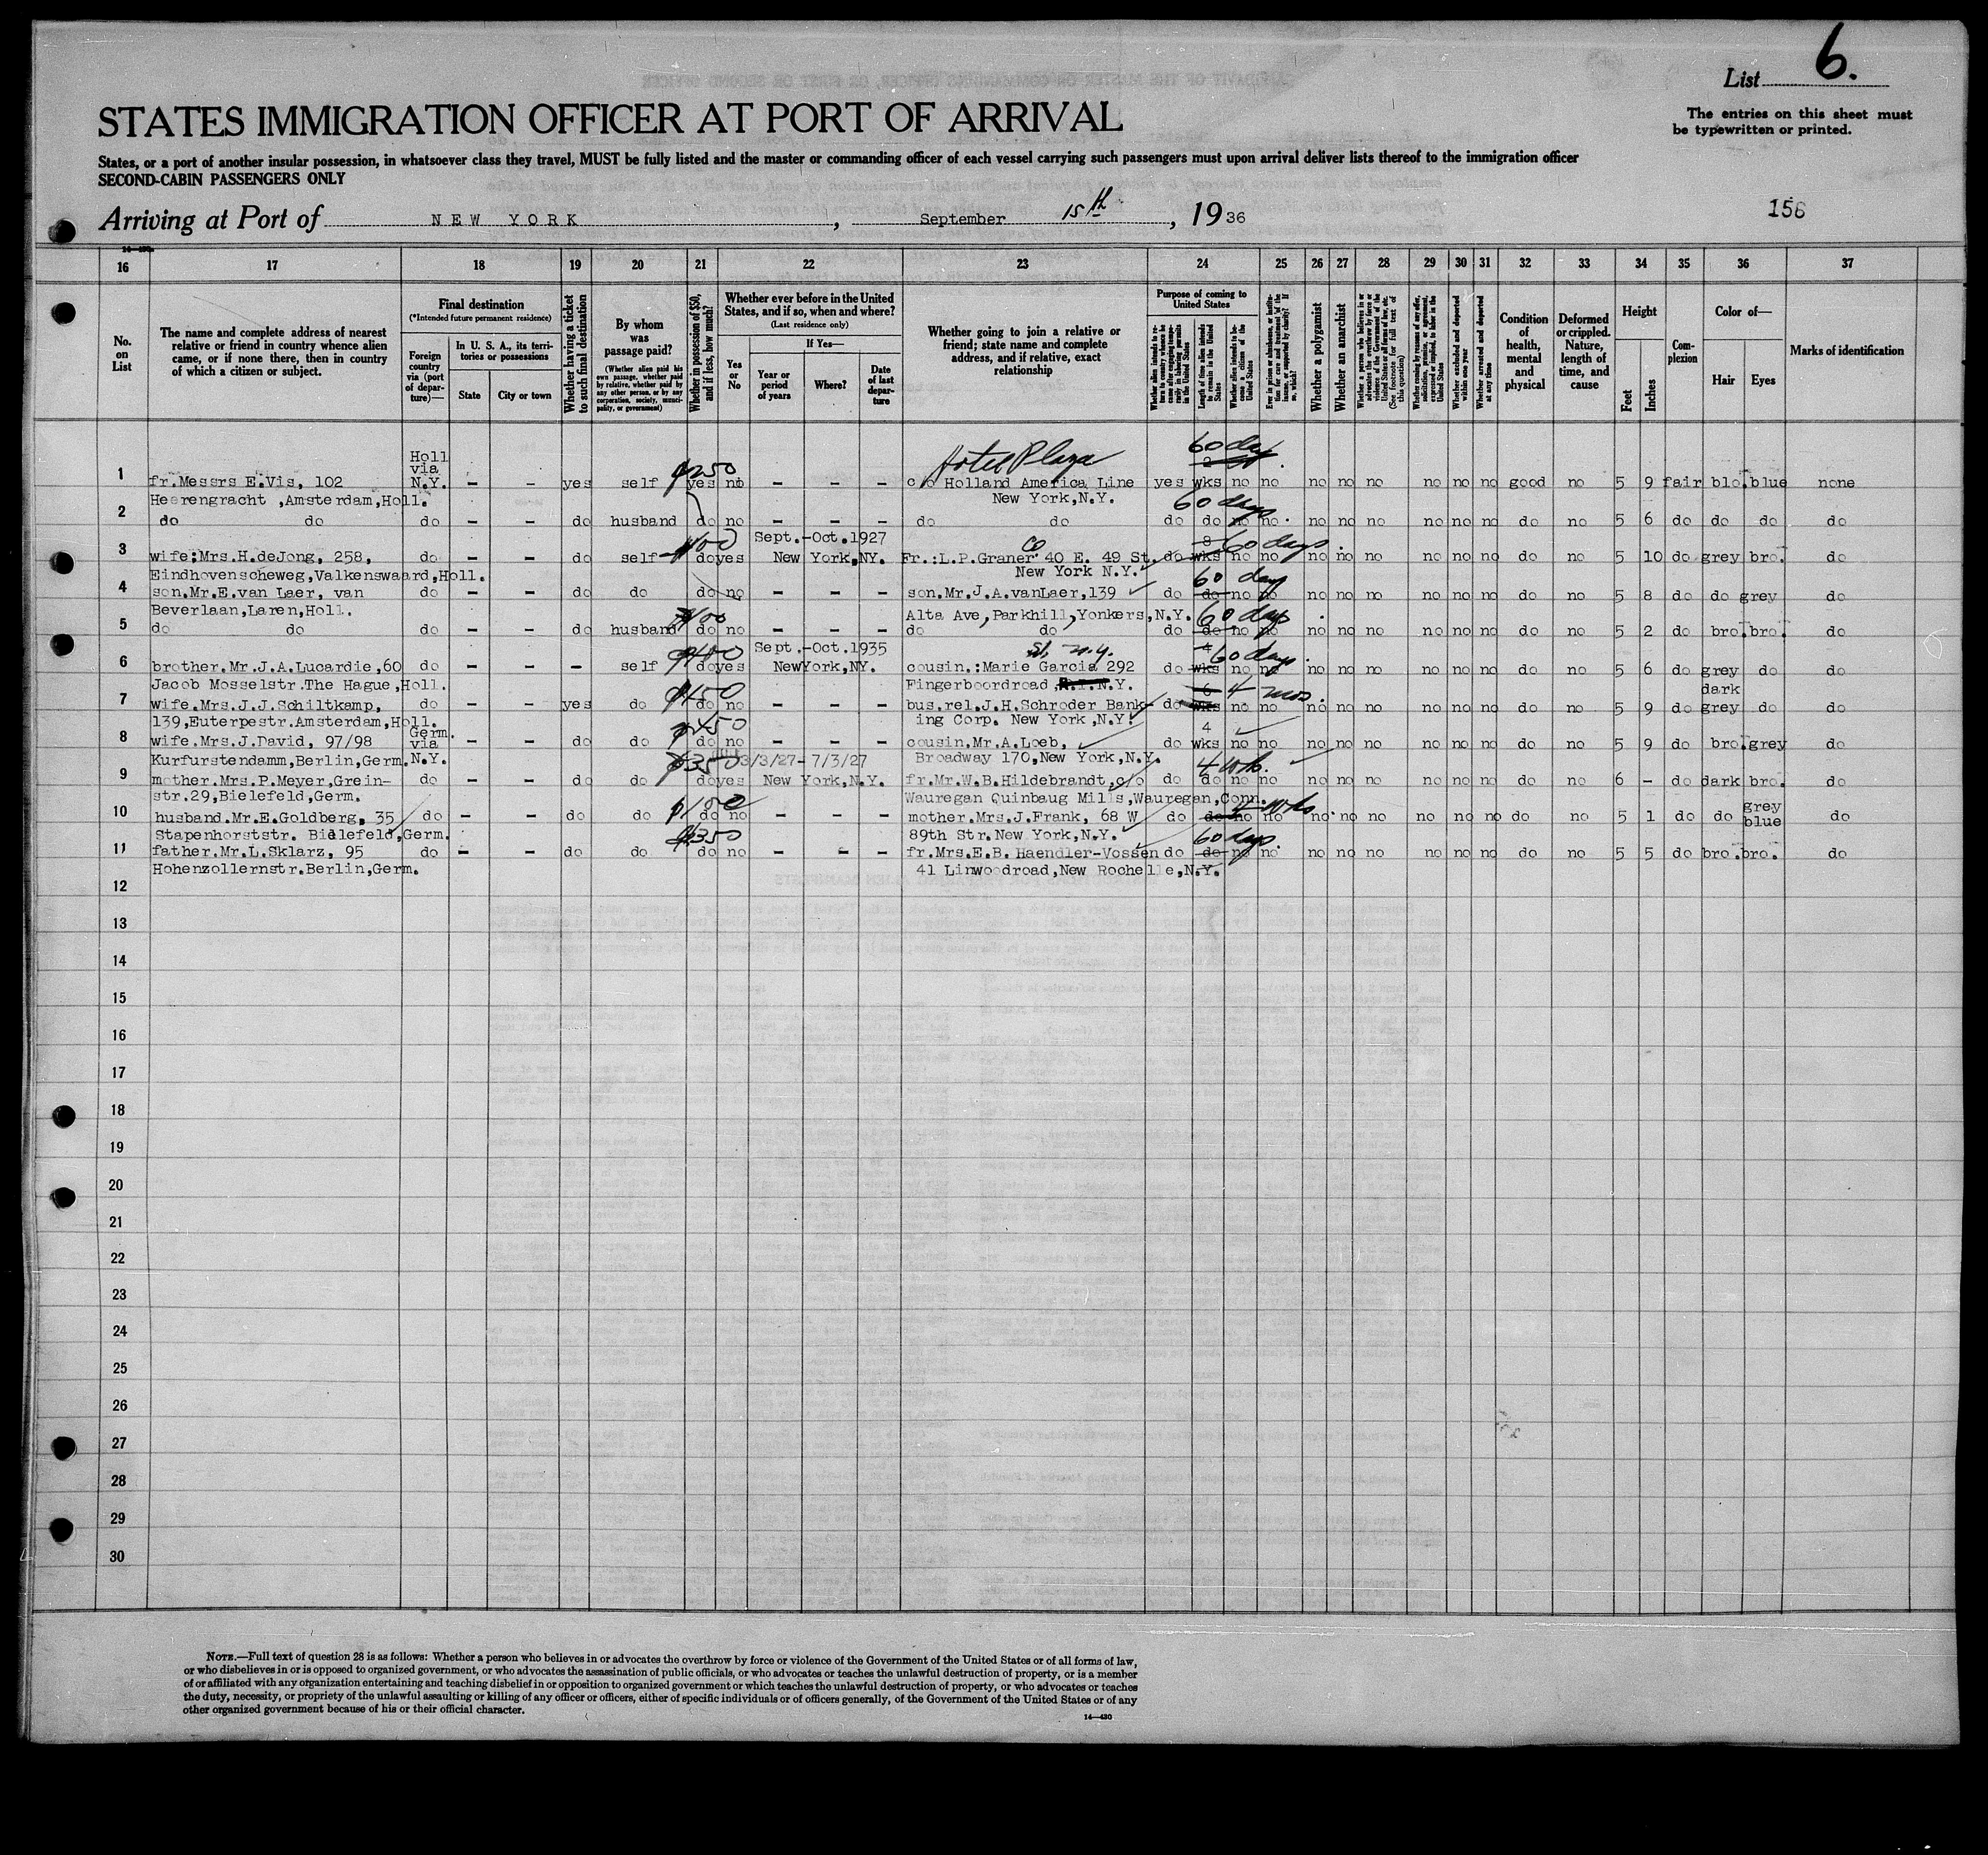 List 6.
The entries on this sheet must
be typewritten or printed.
STATES IMMIGRATION OFFICER AT PORT OF ARRIVAL
States, or a port of another insular possession, in whatsoever class they travel, MUST be fully listed and the master or commanding officer of each vessel carrying such passengers must upon arrival deliver lists thereof to the immigration officer
SECOND-CABIN PASSENGERS ONLY
Arriving at Port of NEW YORK, September 15th, 1936
156
16 17 18 19 20 21 22 23 24 25 26 27 28 29 30 31 32 33 34 35 36 37
No. on List
The name and complete address of nearest relative or friend in country whence alien came, or if none there, then in country of which a citizen or subject.
Final destination
(*Intended future permanent residence)
Foreign country via (port of departure)—
In U. S. A., its territories or possessions
State
City or town
Whether having a ticket to such final destination
By whom was passage paid?
(Whether alien paid his own passage, whether paid by relative, whether paid by any other person, or by any corporation, society, municipality, or government)
Whether in possession of $50, and if less, how much?
Whether ever before in the United States, and if so, when and where?
(Last residence only)
Yes or No
If Yes—
Year or period of years
Where?
Date of last departure
Whether going to join a relative or friend; state name and complete address, and if relative, exact relationship
Purpose of coming to United States
Length of time alien intends to remain in the United States
Whether alien intends to become a citizen of the United States
Whether a polygamist
Whether an anarchist
Whether excluded and deported within one year
Whether arrested and deported at any time
Condition of health, mental and physical
Deformed or crippled. Nature, length of time, and cause
Height
Feet
Inches
Complexion
Color of—
Hair
Eyes
Marks of identification
Holl via 60 days
Hotel Plaza
1 fr.Messrs E.Vis, 102 N.Y. - - yes self $250 yes no - - - c/o Holland America Line yes wks no no no no no no no no good no 5 9 fair blo. blue none
Heerengracht ,Amsterdam,Holl. New York,N.Y. 60 days
2 do do do - - do husband do no - - - do do do do no no no no no no no no do no 5 6 do do do do
Sept.-Oct.1927
3 wife;Mrs.H.deJong, 258, do - - do self $100 do yes New York,NY. Fr.:L.P.Graner Co 40 E. 49 St. do 8 wks 60 days no no no no no no no no do no 5 10 do grey bro. do
Eindhovenscheweg,Valkenswaard,Holl. New York N.Y. 60 days
4 son.Mr.E.van Laer, van do - - do do do no - - - son.Mr.J.A.vanLaer,139 do do no no no no no no no no do no 5 8 do do grey do
Beverlaan,Laren,Holl. Alta Ave,Parkhill,Yonkers,N.Y. 60 days
5 do do do - - do husband $100 do no - - - do do do do no no no no no no no no do no 5 2 do bro. bro. do
Sept.-Oct.1935
6 brother.Mr.J.A.Lucardie,60 do - - - self $400 do yes NewYork,NY. cousin.:Marie Garcia 292 do 4 wks 60 days no no no no no no no no do no 5 6 do grey do do
Jacob Mosselstr.The Hague,Holl. Fingerboordroad, S.I. N.Y.
7 wife.Mrs.J.J.Schiltkamp, do - - yes do $150 do no - - - bus.rel.J.H.Schroder Bank- do 6 wks 4 mos. no no no no no no no no do no 5 9 do dark grey do do
139,Euterpestr.Amsterdam,Holl. ing Corp. New York,N.Y.
8 wife.Mrs.J.David, 97/98 Germ. via N.Y. - - do do $450 do no - - - cousin,Mr.A.Loeb, do 4 wks no no no no no no no no do no 5 9 do bro. grey do
Kurfurstendamm,Berlin,Germ. 3/3/27-7/3/27 Broadway 170,New York,N.Y.
9 mother.Mrs.P.Meyer,Grein- do - - do do $350 do yes New York,N.Y. fr.Mr.W.B.Hildebrandt,c/o do do 4 wks. no no no no no no no no do no 6 - do dark bro. do
str.29,Bielefeld,Germ. Wauregan Quinbaug Mills,Wauregan,Conn.
10 husband.Mr.E.Goldberg, 35 do - - do do $100 do no - - - mother.Mrs.J.Frank, 68 W do do no no no no no no no no do no 5 1 do do grey blue do
Stapenhorststr. Bielefeld,Germ. 89th Str.New York,N.Y. 60 days
11 father.Mr.L.Sklarz, 95 do - - do do $350 do no - - - fr.Mrs.E.B. Haendler-Vossen do do no no no no no no no no do no 5 5 do bro. bro. do
Hohenzollernstr.Berlin,Germ. 41 Linwoodroad,New Rochelle,N.Y.
12
13
14
15
16
17
18
19
20
21
22
23
24
25
26
27
28
29
30
NOTE.—Full text of question 28 is as follows: Whether a person who believes in or advocates the overthrow by force or violence of the Government of the United States or of all forms of law,
or who disbelieves in or is opposed to organized government, or who advocates the assassination of public officials, or who advocates or teaches the unlawful destruction of property, or is a member
of or affiliated with any organization entertaining and teaching disbelief in or opposition to organized government or which teaches the unlawful destruction of property, or who advocates or teaches
the duty, necessity, or propriety of the unlawful assaulting or killing of any officer or officers, either of specific individuals or of officers generally, of the Government of the United States or of any
other organized government because of his or their official character.
14—430